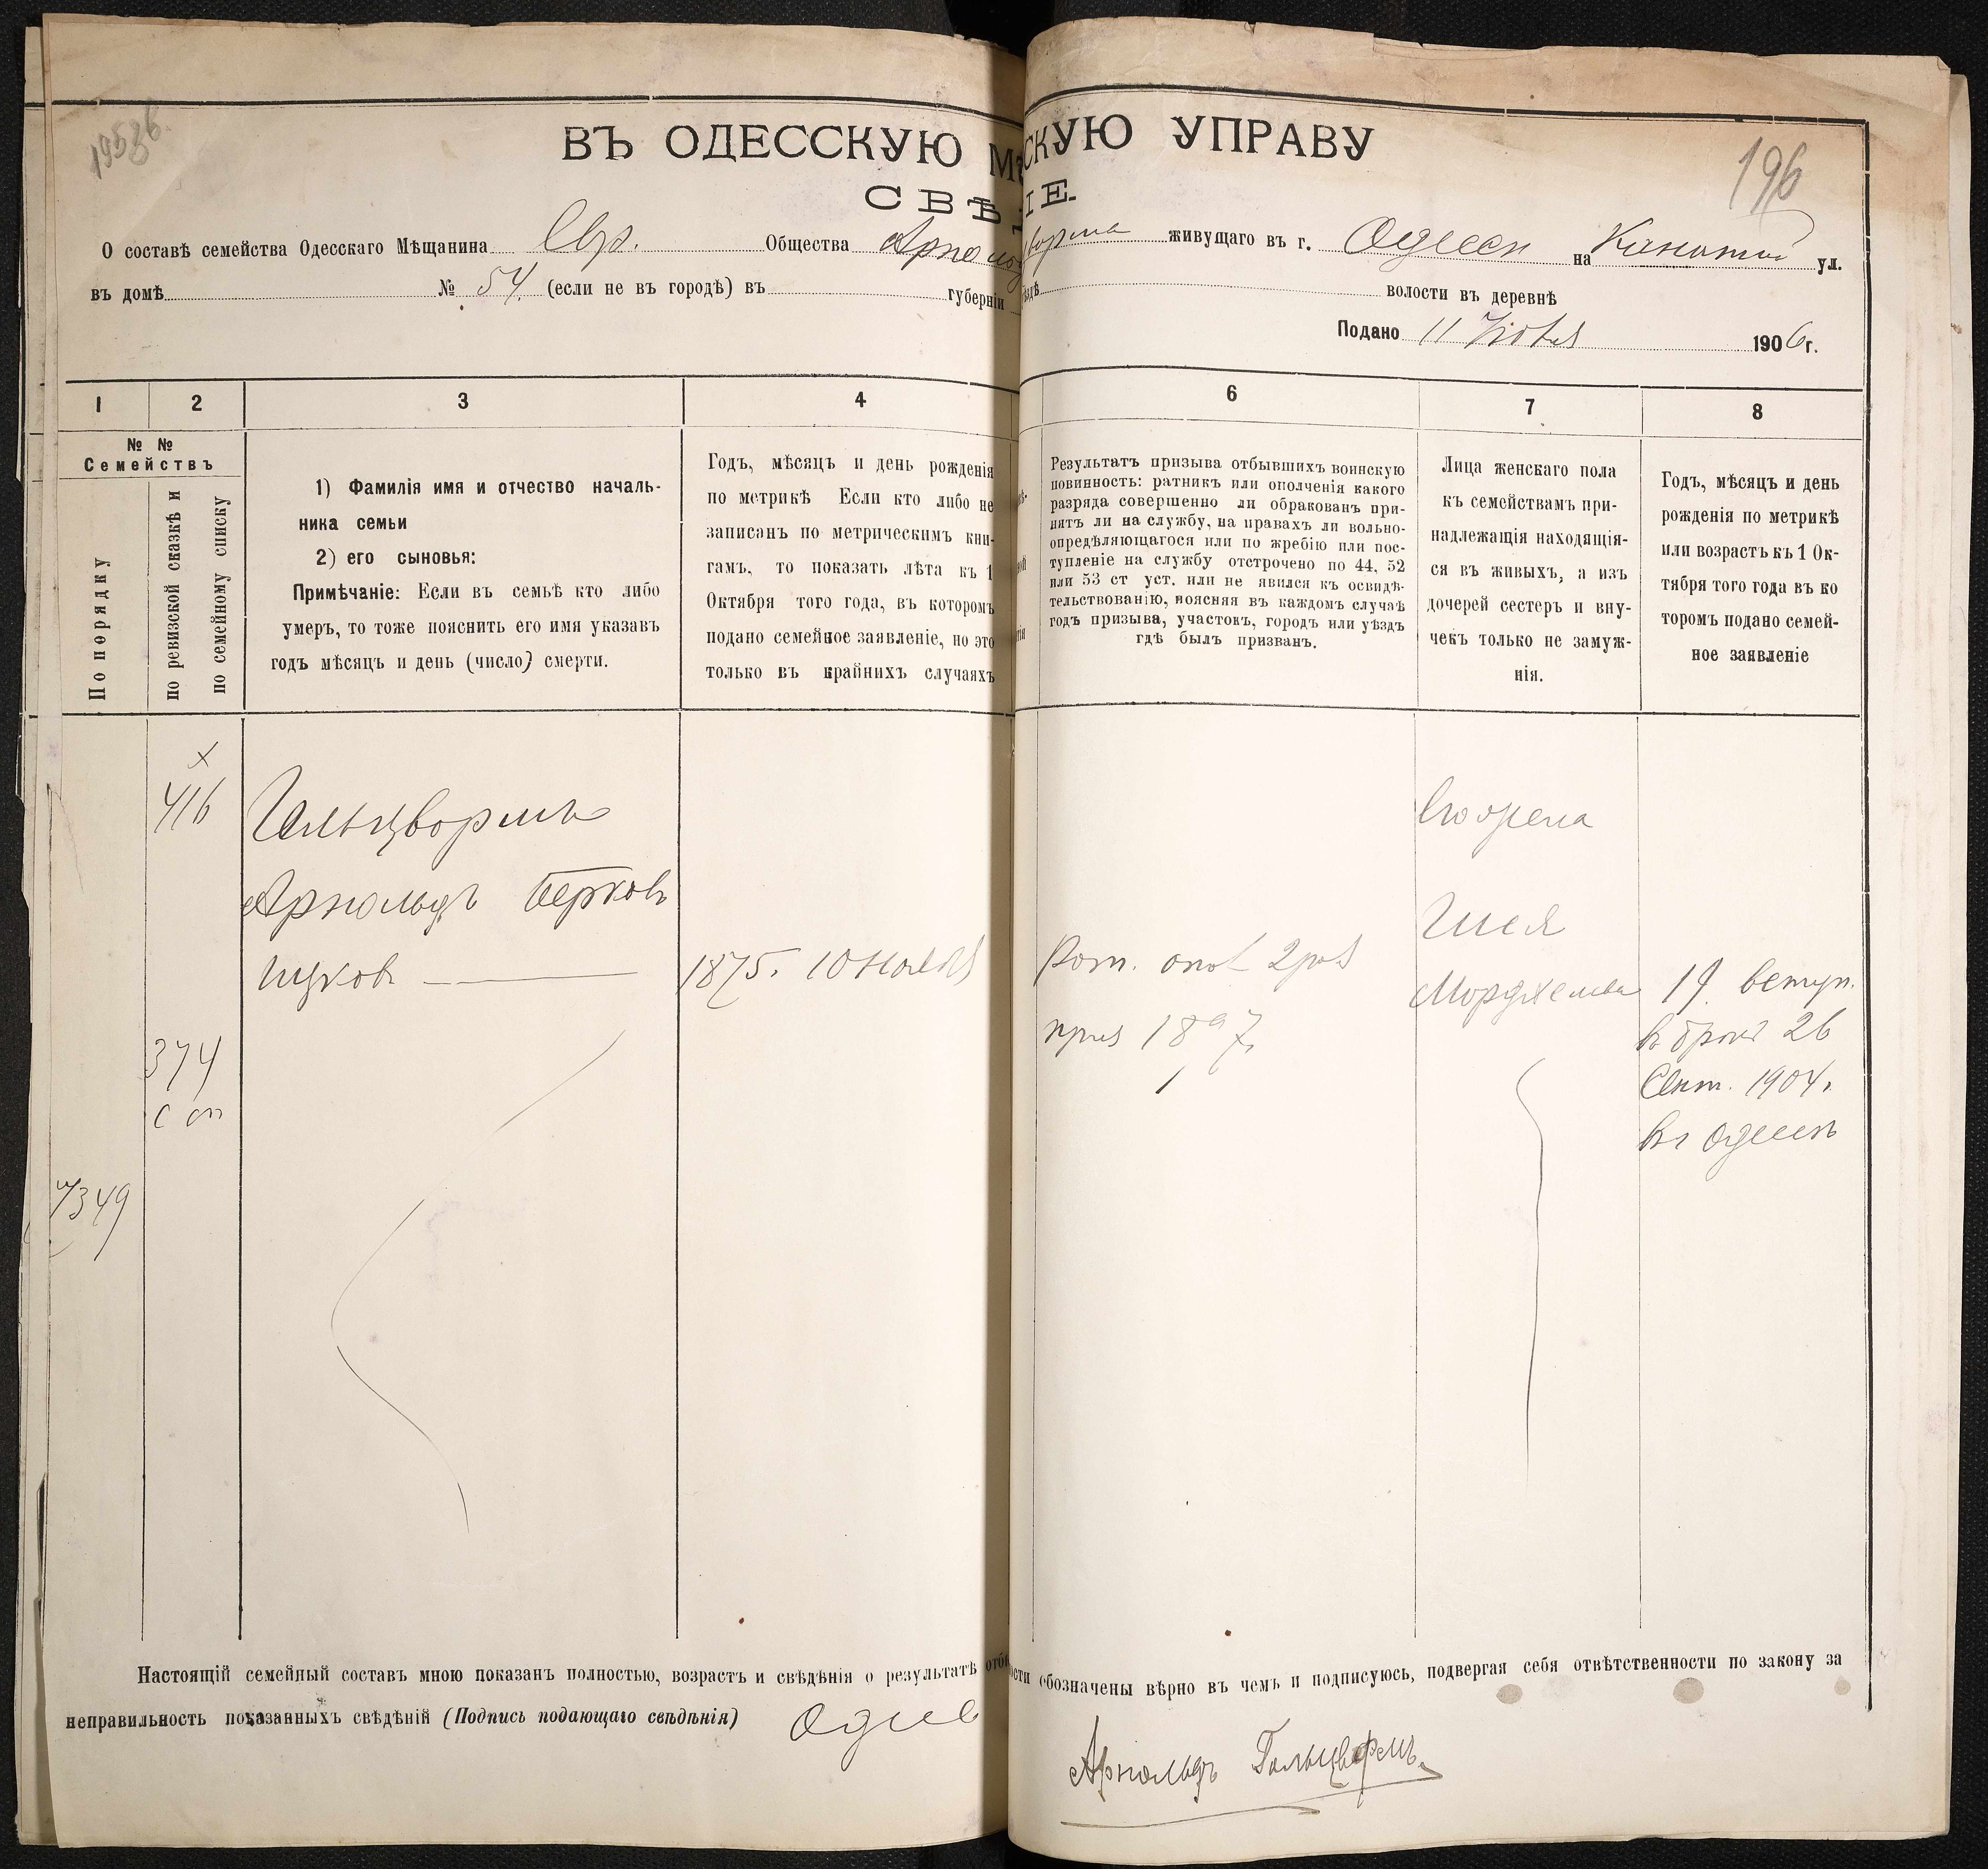 19536
196
ВЪ ОДЕССКУЮ М СКУЮ УПРАВУ
СВѢ ІЕ.
О составѣ семейства Одесскаго Мѣщанина Евр. Общества Арноль ворма живущаго въ г. Одессѣ на Канатной ул.
въ домѣ № 54. (если не въ городѣ) въ губерніи ѣздѣ волости въ деревнѣ
Подано 11 1906 г.
1 2 3 4 6 7 8
№ №
Семействъ
По порядку
по ревизской сказкѣ и
по семейному списку
1) Фамилія имя и отчество началь-
ника семьи
2) его сыновья:
Примѣчаніе: Если въ семьѣ кто либо
умеръ, то тоже пояснить его имя указавъ
годъ мѣсяцъ и день (число) смерти.
Годъ, мѣсяцъ и день рожденія
по метрикѣ Если кто либо не
записанъ по метрическимъ кни-
гамъ, то показать лѣта къ 1
Октября того года, въ которомъ
подано семейное заявленіе, но это
только въ крайнихъ случаяхъ
Результатъ призыва отбывшихъ воинскую
повинность: ратникъ или ополченія какого
разряда совершенно ли обракованъ при-
нятъ ли на службу, на правахъ ли вольно-
опредѣляющагося или по жребію или пос-
тупленіе на службу отстрочено по 44, 52
или 53 ст уст. или не явился къ освидѣ-
тельствованію, поясняя въ каждомъ случаѣ
годъ призыва, участокъ, городъ или уѣздъ
гдѣ былъ призванъ.
Лица женскаго пола
къ семействамъ при-
надлежащія находящія-
ся въ живыхъ, а изъ
дочерей сестеръ и вну-
чекъ только не замуж-
нія.
Годъ, мѣсяцъ и день
рожденія по метрикѣ
или возрастъ къ 1 Ок-
тября того года въ ко
торомъ подано семей-
ное заявленіе
х
416
Гольцвормъ
Арнольдъ Берковъ
Ицковъ
1875. 10 Ноября
Рат. опол 2 раз
приз 1897
1
Его жена
Гися
Мордхелева
19. вступ.
въ бракъ 26
Сент. 1904.
въ Одессѣ
374
с сп
7349
Настоящій семейный составъ мною показанъ полностью, возрастъ и свѣдѣнія о результатѣ отбы ости обозначены вѣрно въ чемъ и подписуюсь, подвергая себя отвѣтственности по закону за
неправильность показанныхъ свѣдѣній (Подпись подающаго свѣдѣнія) Одес
Арнольдъ Гольцвормъ